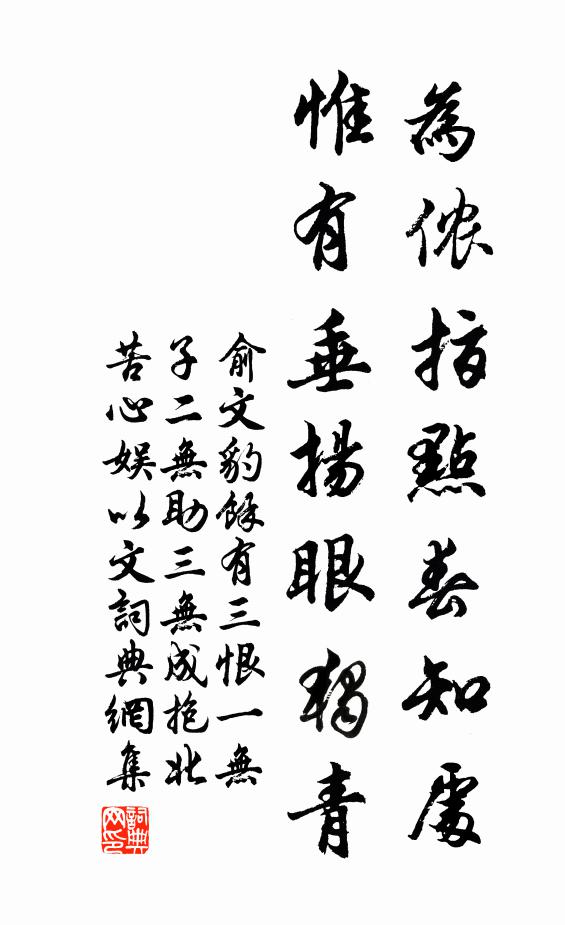 為儂指點春知處
惟有垂揚眼獨青
俞文豹餘有三恨一無
子二無助三無成抱北
苦心娱以文詞典網集
詞典
网印